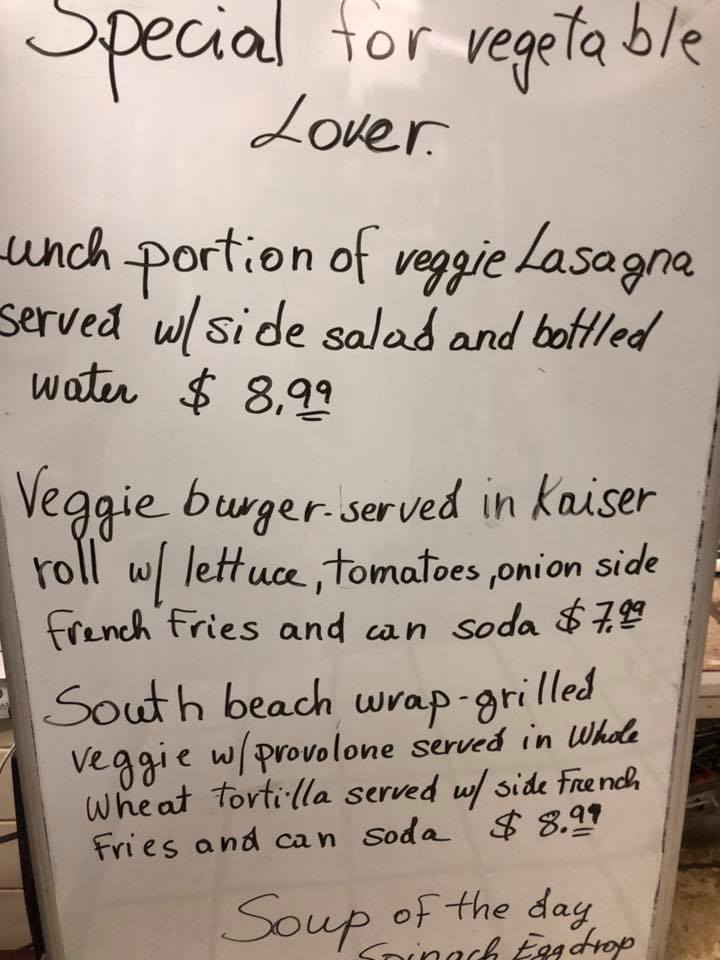 Special for vegetable
Lover.
Lunch portion of veggie Lasagna
served w/ side salad and bottled
water $ 8.99
Veggie burger-served in Kaiser
roll w/ lettuce, tomatoes, onion side
french fries and can soda $ 7.99
South beach wrap-grilled
veggie w/ provolone served in Whole
Wheat tortilla served w/ side French
Fries and can soda $ 8.99
Soup of the day
Spinach Eggdrop